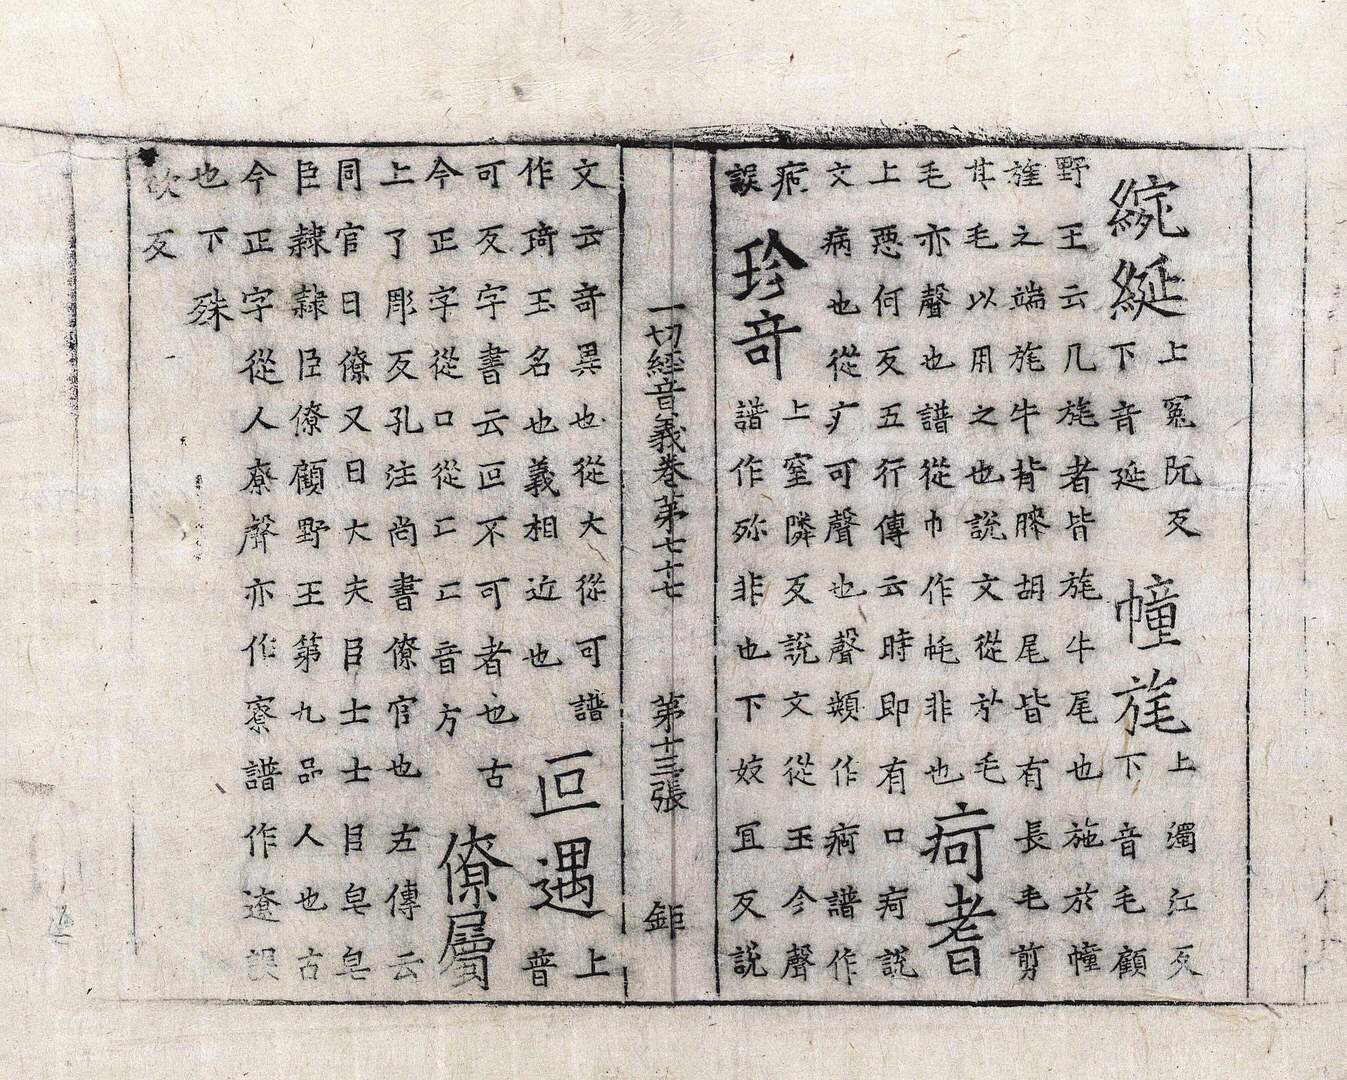 綩綖上冤阮反下音延幢旄上濁江反下音毛顧
野王云凡旄者皆旄牛尾也施於幢
旌之端旄牛背胡尾皆有長毛剪
其毛以用之也說文從㫃毛
毛亦聲也譜從巾作非也疴耆
上惡何反五行傳云時即有口疴說
文病也從疒可聲也聲類作痾譜作
誤珍竒上窒隣反說文從玉今聲
譜作珎非也下妓冝反說
一切經音義卷第七十七 第十三張 鉅
文云竒異也從大從可譜
作琦玉名也義相近也叵遇上普
可反字書云叵不可者也古
今正字從口從匚匚音方僚屬
上了彫反孔注尚書僚官也左傳云
同官曰僚又曰大夫臣士士臣皂皂
臣隸隸臣僚顧野王第九品人也古
今正字從人尞聲亦作寮譜作遼誤
也下殊
欲反